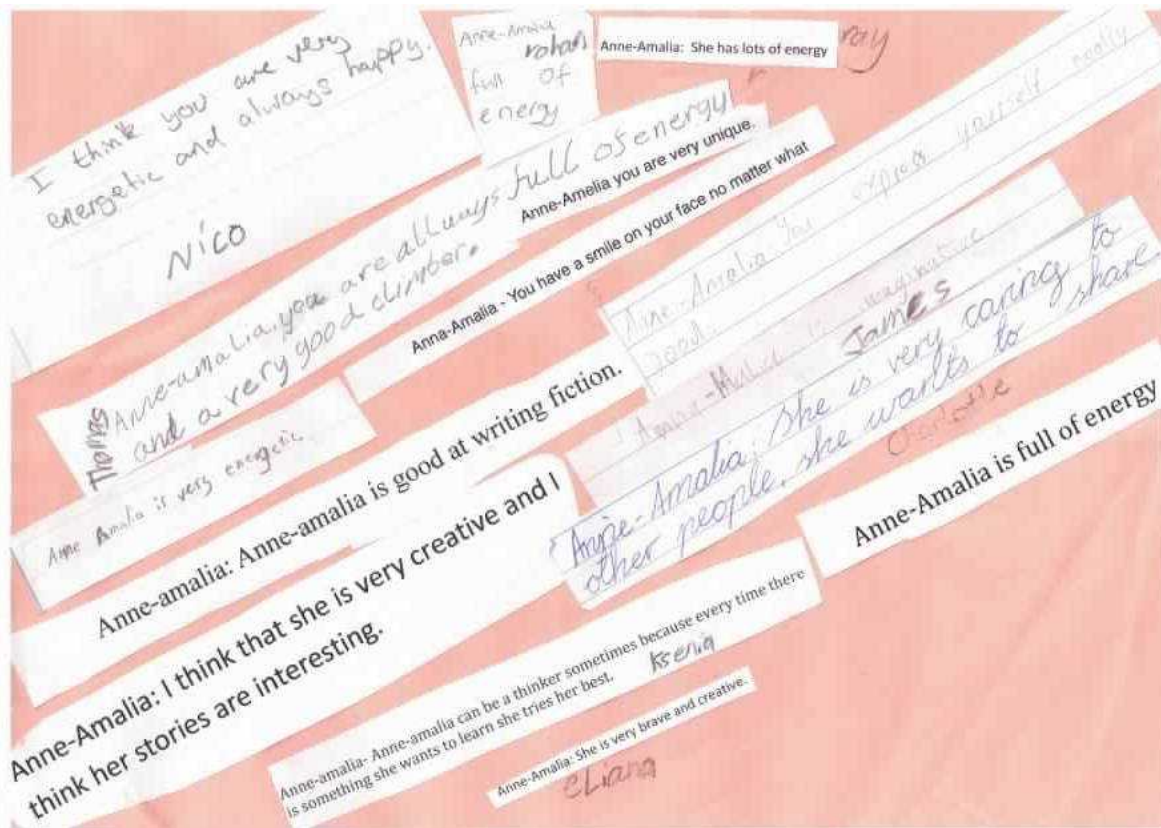 I think you are very
energetic and always happy.
Nico
Anne-Amalia
rohan
full of
energy
Anne-Amalia: She has lots of energy
ray
Thomas
Anne-amalia you are allways full of energy
and a very good climber.
Anne-Amelia you are very unique.
Anna-Amalia - You have a smile on your face no matter what
Anne-Amalia You express yourself really
good.
imaginative
James
Anne Amalia is very energetic.
Anne-amalia: Anne-amalia is good at writing fiction.
Anne-Amalia: She is very caring to
other people. she wants to share.
Charlotte
Anne-Amalia is full of energy
Anne-Amalia: I think that she is very creative and I
think her stories are interesting.
Anne-amalia- Anne-amalia can be a thinker sometimes because every time there
is something she wants to learn she tries her best.
Ksenia
Anne-Amalia: She is very brave and creative.
eLiana